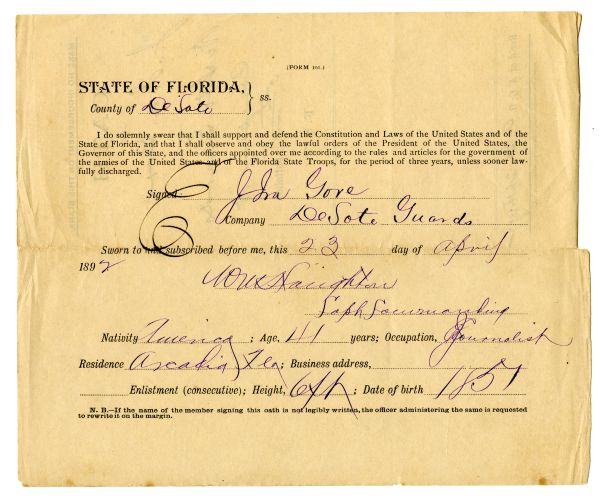 (FORM 101.)
STATE OF FLORIDA,
County of De Soto } ss.
I do solemnly swear that I shall support and defend the Constitution and Laws of the United States and of the
State of Florida, and that I shall observe and obey the lawful orders of the President of the United States, the
Governor of this State, and the officers appointed over me according to the rules and articles for the government of
the armies of the United States and of the Florida State Troops, for the period of three years, unless sooner law-
fully discharged.
Signed J Ira Gore
Company DeSoto Guards
Sworn to and subscribed before me, this 23 day of April
1892
Capt Commanding
Nativity America ; Age, 41 years; Occupation, Journalist
Residence Arcadia, Fla ; Business address,
Enlistment (consecutive); Height, 6 ft ; Date of birth 1851
N. B.—If the name of the member signing this oath is not legibly written, the officer administering the same is requested
to rewrite it on the margin.